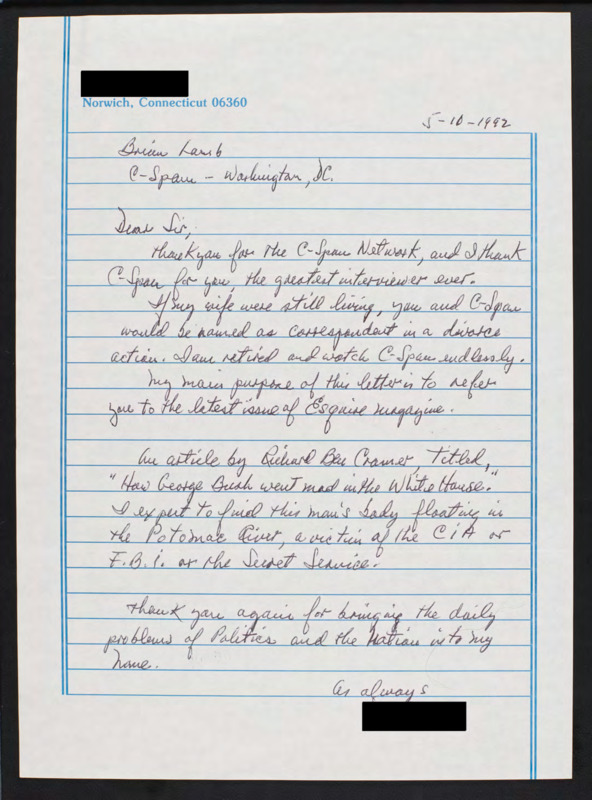 Norwich, Connecticut 06360
5-10-1992
Brian Lamb
C-Span - Washington, DC.
Dear Sir,
Thank you for the C-Span Network, and I thank
C-Span for you, the greatest interviewer ever.
If my wife were still living, you and C-Span
would be named as correspondent in a divorce
action. I am retired and watch C-Span endlessly.
My main purpose of this letter is to refer
you to the latest issue of Esquire magazine.
An article by Richard Ben Cramer, Titled,
"How George Bush went mad in the White House."
I expect to find this man's body floating in
the Potomac River, a victim of the CIA or
F.B.I. or the Secret Service.
Thank you again for bringing the daily
problems of Politics and the Nation into my
home.
As always